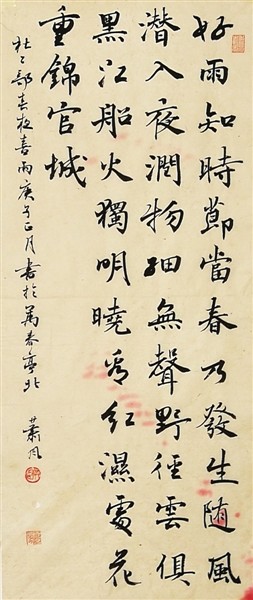 好雨知時節當春乃發生随風
潛入夜潤物細無聲野徑雲俱
黑江船火獨明曉看紅濕處花
重錦官城
杜工部春夜喜雨庚子正月書於萬春亭北
蕭風